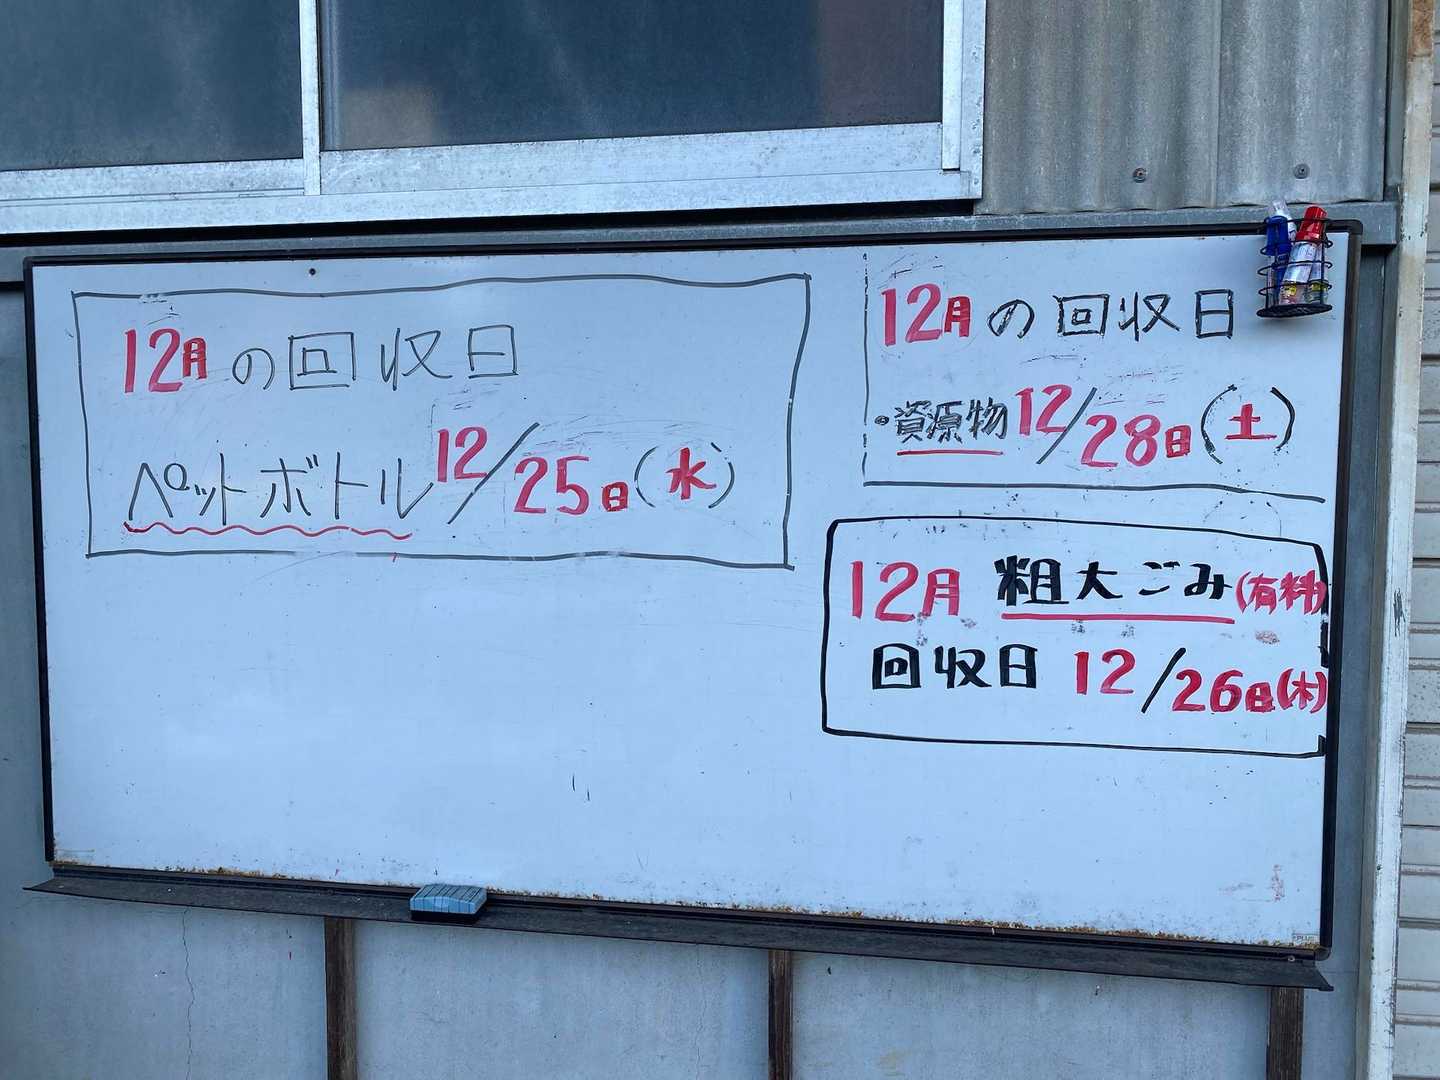 12月の回収日
ペットボトル12/25日(水)
12月の回収日
・資源物12/28日(土)
12月 粗大ごみ(有料)
回収日 12/26日(木)
PLUS